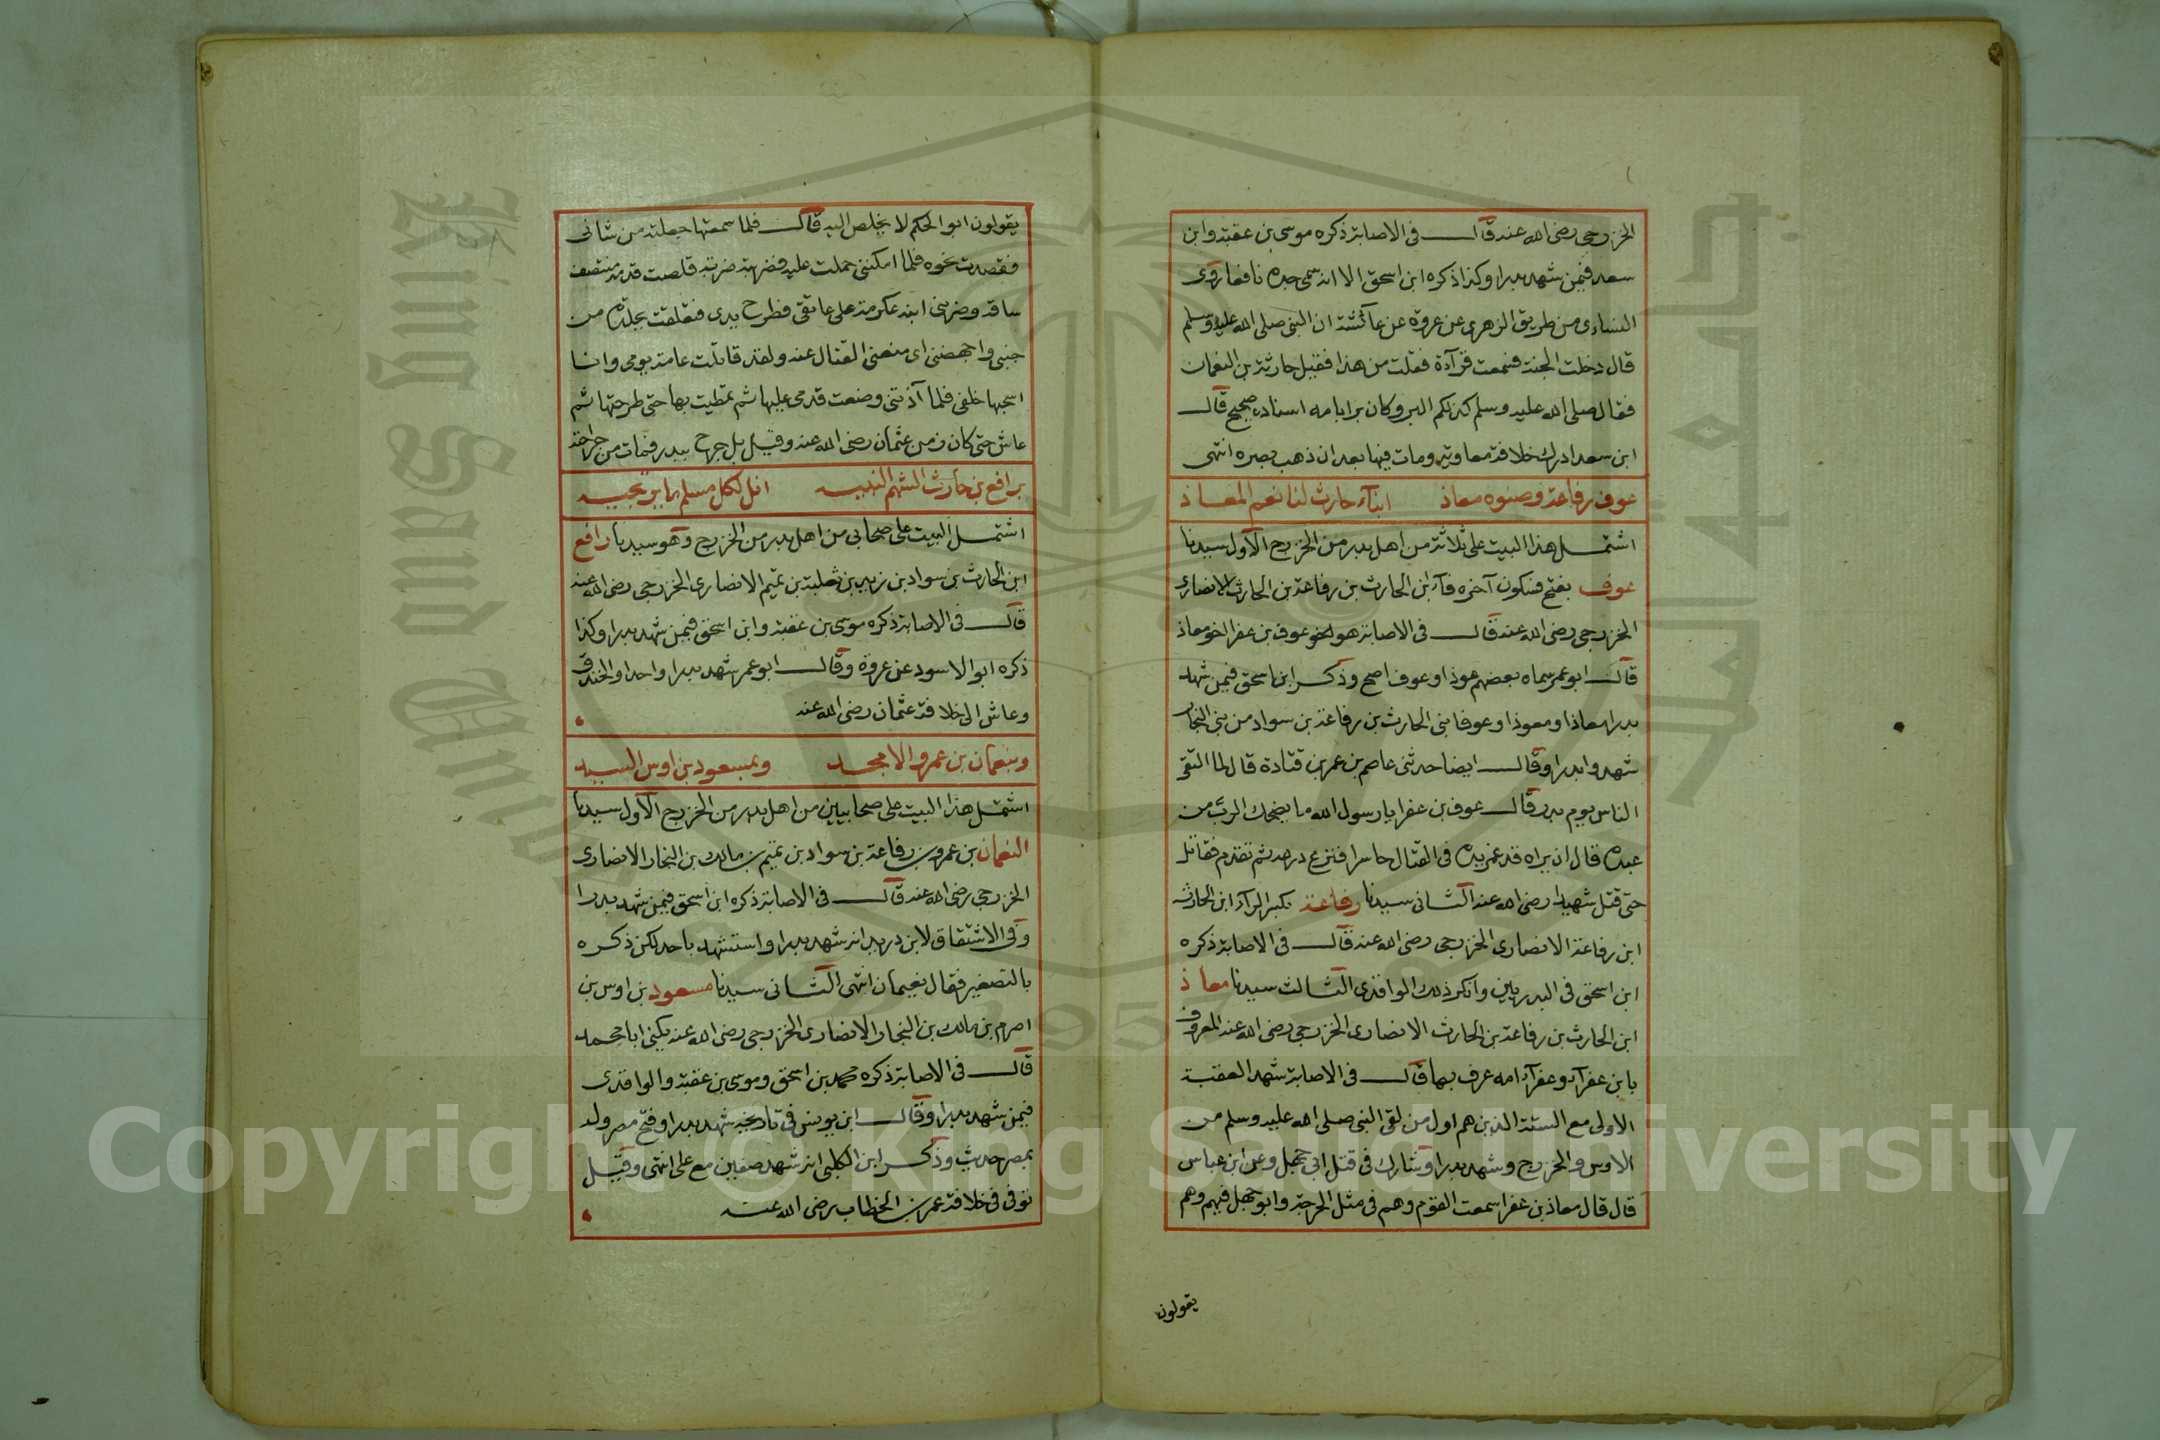 الخزرجي رضي الله عنه قال في الاصابة ذكره موسى بن عقبة وابن
سعد فيمن شهد بدرا وكذا ذكره ابن اسحق الا انه سمى جده نافعا روى
النساءى من طريق الزهرى عن عروة عن عائشة ان النبي صلى الله عليه وسلم
قال دخلت الجنة فسمعت قرآءة فقلت من هذا فقيل حارثة بن النعمان
فقال صلى الله عليه وسلم كذلكم البر وكان برا بامه اسناده صحيح قال
ابن سعد ادرك خلافة معاوية ومات فيها بعد ان ذهب بصره انتهى
عوف رفاعة وصنوه معاذ ابنآء حارث لنا نعم المعاذ
اشتمل هذا البيت على ثلاثة من اهل بدر من الخزرج الاول سيدنا
عوف بفتح فسكون آخره فآء ابن الحارث بن رفاعة بن الحارث الانصارى
الخزرجي رضي الله عنه قال في الاصابة هو عوف بن عفرا اخو معاذ
قال ابو عمر سماه بعضهم عوذا وعوف اصح وذكر ابن اسحق فيمن شهد
بدرا معاذا ومعوذا وعوفا بنى الحارث بن رفاعة بن سواد من بني النجار
شهدوا بدرا وقال ايضا حدثني عاصم بن عمر بن قتادة قال لما التقى
الناس يوم بدر قال عوف بن عفرا يا رسول الله ما يضحك الرب من
عبده قال ان يراه قد غمز يده في القتال حاسرا فنزع درعه ثم تقدم فقاتل
حتى قتل شهيدا رضي الله عنه الثانى سيدنا رفاعة بكسر الرآء ابن الحارث
ابن رفاعة الانصارى الخزرجي رضي الله عنه قال في الاصابة ذكره
ابن اسحق في البدريين وانكر ذلك الواقدى الثالث سيدنا معاذ
ابن الحارث بن رفاعة بن الحارث الانصارى الخزرجي رضي الله عنه المعروف
بابن عفرآء وعفرآء امه عرف بها قال في الاصابة شهد العقبة
الاولى مع الستة الذين هم اول من لقى النبي صلى الله عليه وسلم من
الاوس والخزرج وشهد بدرا وشارك في قتل ابي جهل وعن ابن عباس
قال قال معاذ بن عفرا سمعت القوم وهم في مثل الحرجة وابو جهل فيهم وهم
يقولون
يقولون ابو الحكم لا يخلص اليه قال فلما سمعتها جعلته من شانى
فقصدت نحوه فلما امكننى حملت عليه فضربته ضربة قلصت قدمه بنصف
ساقه وضربنى ابنه عكرمة على عاتقى فطرح يدى فتعلقت بجلده من
جنبى واجهضنى اى منعنى القتال عنه ولقد قاتلت عامة يومى وانا
اسحبها خلفى فلما آذتنى وضعت قدمى عليها ثم تمطيت بها حتى طرحتها ثم
عاش حتى كان زمن عثمان رضي الله عنه وقيل بل جرح ببدر فمات من جراحته
برافع بن حارث الشهم النبيه انل لكل مسلم ما يرتجيه
اشتمل البيت على صحابي من اهل بدر من الخزرج وهو سيدنا رافع
ابن الحارث بن سواد بن زيد بن ثعلبة بن غنم الانصارى الخزرجي رضي الله عنه
قال في الاصابة ذكره موسى بن عقبة وابن اسحق فيمن شهد بدرا وكذا
ذكره ابو الاسود عن عروة وقال ابو عمر شهد بدرا واحدا والخندق
وعاش الى خلافة عثمان رضي الله عنه
وبنعمان بن عمرو الامجد وبمسعود بن اوس السيد
اشتمل هذا البيت على صحابيين من اهل بدر من الخزرج الاول سيدنا
النعمان بن عمرو بن رفاعة بن سواد بن غنيم بن مالك بن النجار الانصارى
الخزرجي رضي الله عنه قال في الاصابة ذكره ابن اسحق فيمن شهد بدرا
وفي الاشتقاق لابن دريد انه شهد بدرا واستشهد باحد لكن ذكره
بالتصغير فقال نعيمان انتهى الثانى سيدنا مسعود بن اوس بن
اصرم بن مالك بن النجار الانصارى الخزرجي رضي الله عنه يكنى ابا محمد
قال في الاصابة ذكره محمد بن اسحق وموسى بن عقبة والواقدى
فيمن شهد بدرا وقال ابن يونس في تاريخه شهد بدرا وفتح مصر وله
بمصر حديث وذكر ابن الكلبي انه شهد صفين مع على انتهى وقيل
توفى في خلافة عمر بن الخطاب رضي الله عنه
Copyright © King Saud University
King Saud University
جامعة الملك سعود
1957